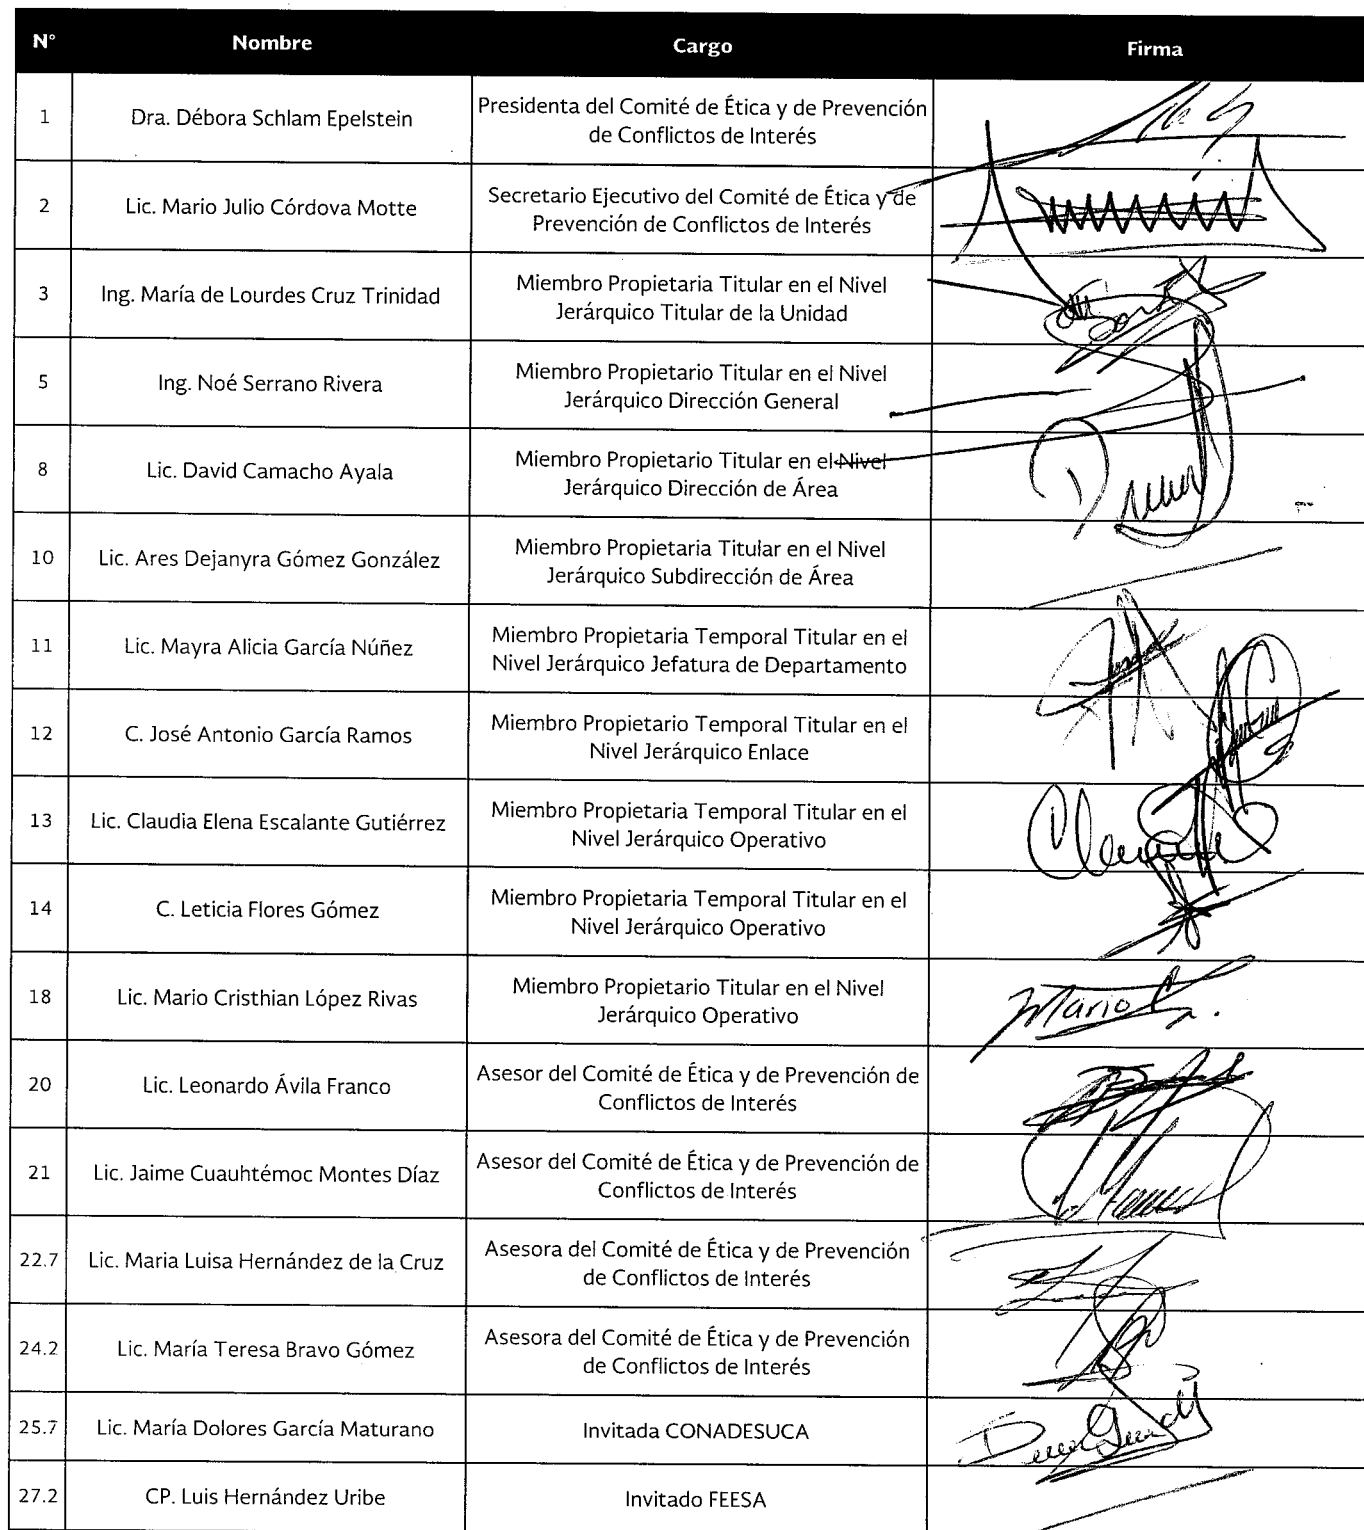 N° Nombre Cargo Firma
1 Dra. Débora Schlam Epelstein Presidenta del Comité de Ética y de Prevención
de Conflictos de Interés
2 Lic. Mario Julio Córdova Motte Secretario Ejecutivo del Comité de Ética y de
Prevención de Conflictos de Interés
3 Ing. María de Lourdes Cruz Trinidad Miembro Propietaria Titular en el Nivel
Jerárquico Titular de la Unidad
5 Ing. Noé Serrano Rivera Miembro Propietario Titular en el Nivel
Jerárquico Dirección General
8 Lic. David Camacho Ayala Miembro Propietario Titular en el Nivel
Jerárquico Dirección de Área
10 Lic. Ares Dejanyra Gómez González Miembro Propietaria Titular en el Nivel
Jerárquico Subdirección de Área
11 Lic. Mayra Alicia García Núñez Miembro Propietaria Temporal Titular en el
Nivel Jerárquico Jefatura de Departamento
12 C. José Antonio García Ramos Miembro Propietario Temporal Titular en el
Nivel Jerárquico Enlace
13 Lic. Claudia Elena Escalante Gutiérrez Miembro Propietaria Temporal Titular en el
Nivel Jerárquico Operativo
14 C. Leticia Flores Gómez Miembro Propietaria Temporal Titular en el
Nivel Jerárquico Operativo
18 Lic. Mario Cristhian López Rivas Miembro Propietario Titular en el Nivel
Jerárquico Operativo Mario
20 Lic. Leonardo Ávila Franco Asesor del Comité de Ética y de Prevención de
Conflictos de Interés
21 Lic. Jaime Cuauhtémoc Montes Díaz Asesor del Comité de Ética y de Prevención de
Conflictos de Interés
22.7 Lic. Maria Luisa Hernández de la Cruz Asesora del Comité de Ética y de Prevención
de Conflictos de Interés
24.2 Lic. María Teresa Bravo Gómez Asesora del Comité de Ética y de Prevención
de Conflictos de Interés
25.7 Lic. María Dolores García Maturano Invitada CONADESUCA
27.2 CP. Luis Hernández Uribe Invitado FEESA